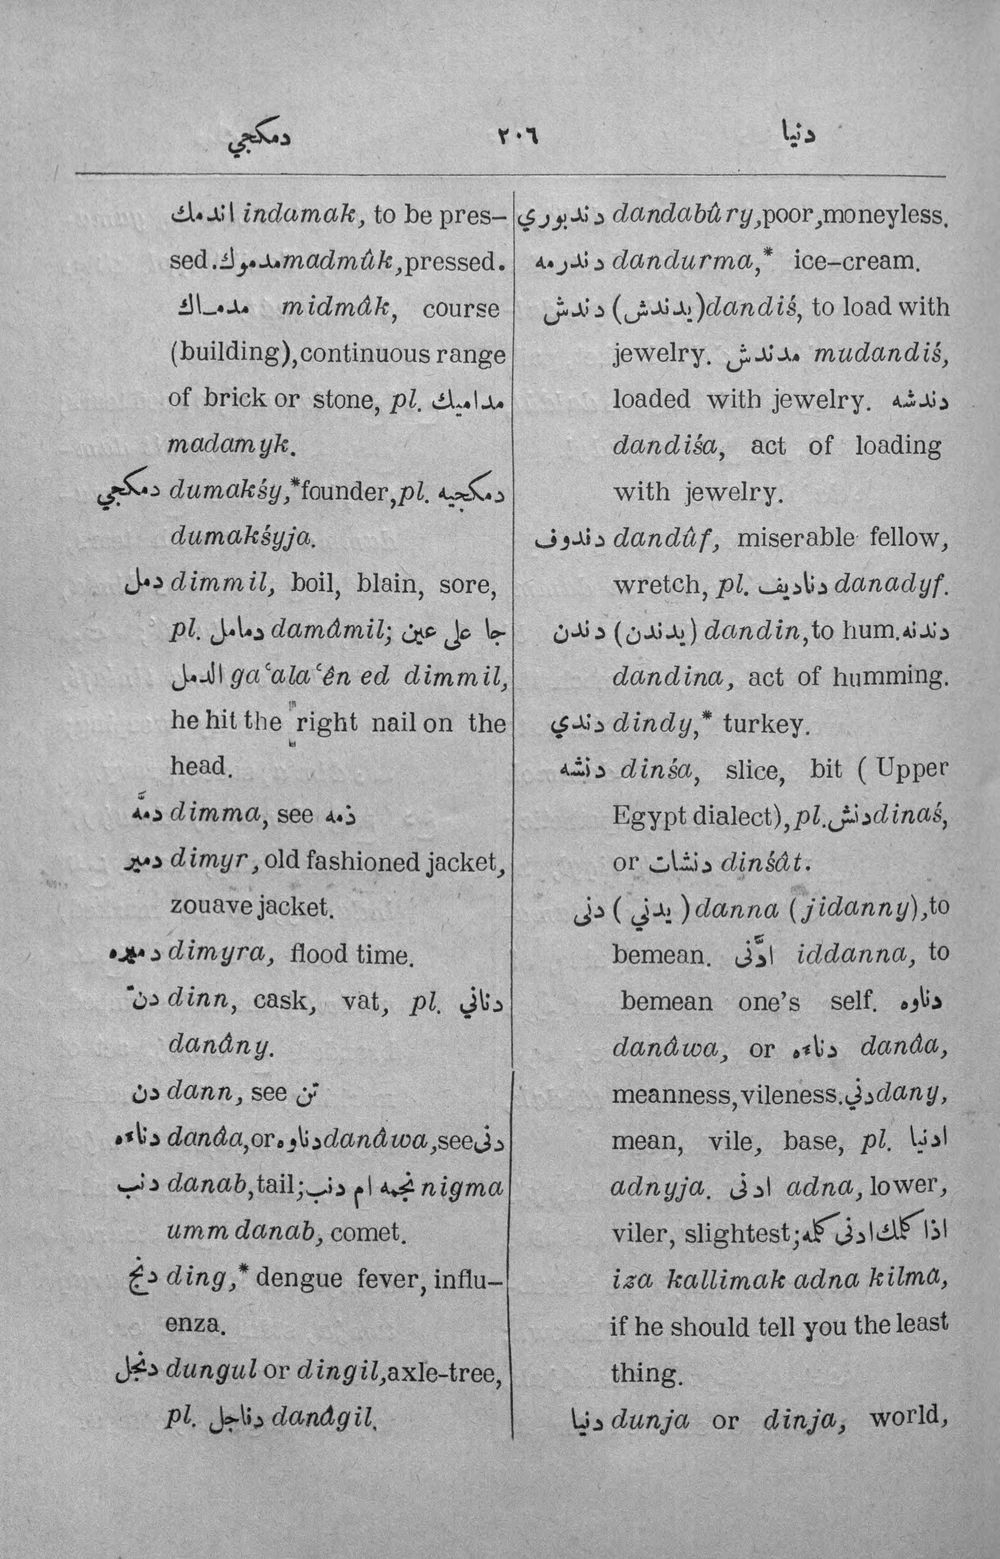 دمكجي ٢٠٦ دنيا
اندمك indamak, to be pres-
sed. مدموك madmûk, pressed.
مدماك midmâk, course
(building), continuous range
of brick or stone, pl. مداميك
madamyk.
دمكجي dumakśy,* founder, pl. دمكجيه
dumakśyja.
دمل dimmil, boil, blain, sore,
pl. دمامل damâmil; جا على عين
الدمل ga ʿala ʿên ed dimmil,
he hit the right nail on the
head.
دمَّه dimma, see ذمه
دمير dimyr, old fashioned jacket,
zouave jacket.
دميره dimyra, flood time.
دنّ dinn, cask, vat, pl. دناني
danâny.
دن dann, see تن
دناءه danâa, or دناوه danâwa, see دنى
دنب danab, tail; نجمه ام دنب nigma
umm danab, comet.
دنج ding,* dengue fever, influ-
enza.
دنجل dungul or dingil, axle-tree,
pl. دناجل danâgil.
دندبوري dandabûry, poor, moneyless.
دندرمه dandurma,* ice-cream.
دندش (يدندش) dandiś, to load with
jewelry. مدندش mudandiś,
loaded with jewelry. دندشه
dandiśa, act of loading
with jewelry.
دندوف dandûf, miserable fellow,
wretch, pl. دناديف danadyf.
دندن (يدندن) dandin, to hum. دندنه
dandina, act of humming.
دندي dindy,* turkey.
دنشه dinśa, slice, bit (Upper
Egypt dialect), pl. دنش dinaś,
or دنشات dinśât.
دنى (يدني) danna (jidanny), to
bemean. ادَّنى iddanna, to
bemean one's self. دناوه
danâwa, or دناءه danâa,
meanness, vileness. دني dany,
mean, vile, base, pl. ادنيا
adnyja. ادنى adna, lower,
viler, slightest; اذا كلمك ادنى كلمه
iza kallimak adna kilma,
if he should tell you the least
thing.
دنيا dunja or dinja, world,